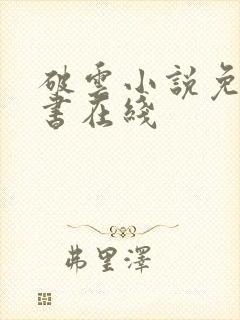 破雲小說免
書在綫
弗里澤